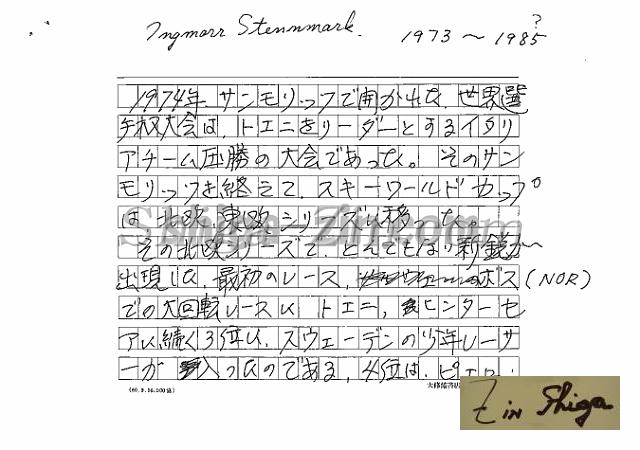 Ingmarr Stennmark.
?
1973 ~ 1985
1974年 サンモリッツで開かれた、世界選
手权大会は、トエニをリーダーとするイタリ
アチーム圧勝の大会であった。そのサン
モリッツを終えて、スキーワールドカップ
は、北欧、東欧シリーズに移った。
その北欧シリーズで、とんでもない新鋭が
出現した、最初のレース、ボス(NOR)
での大回転レースに トエニ、ヒンターセ
アに続く3位に、スウェーデンの少年レーサ
ーが 入ったのである、4位は、ピエロ・
(60.9.16,000冊)
大修館書店
Z in Shiga